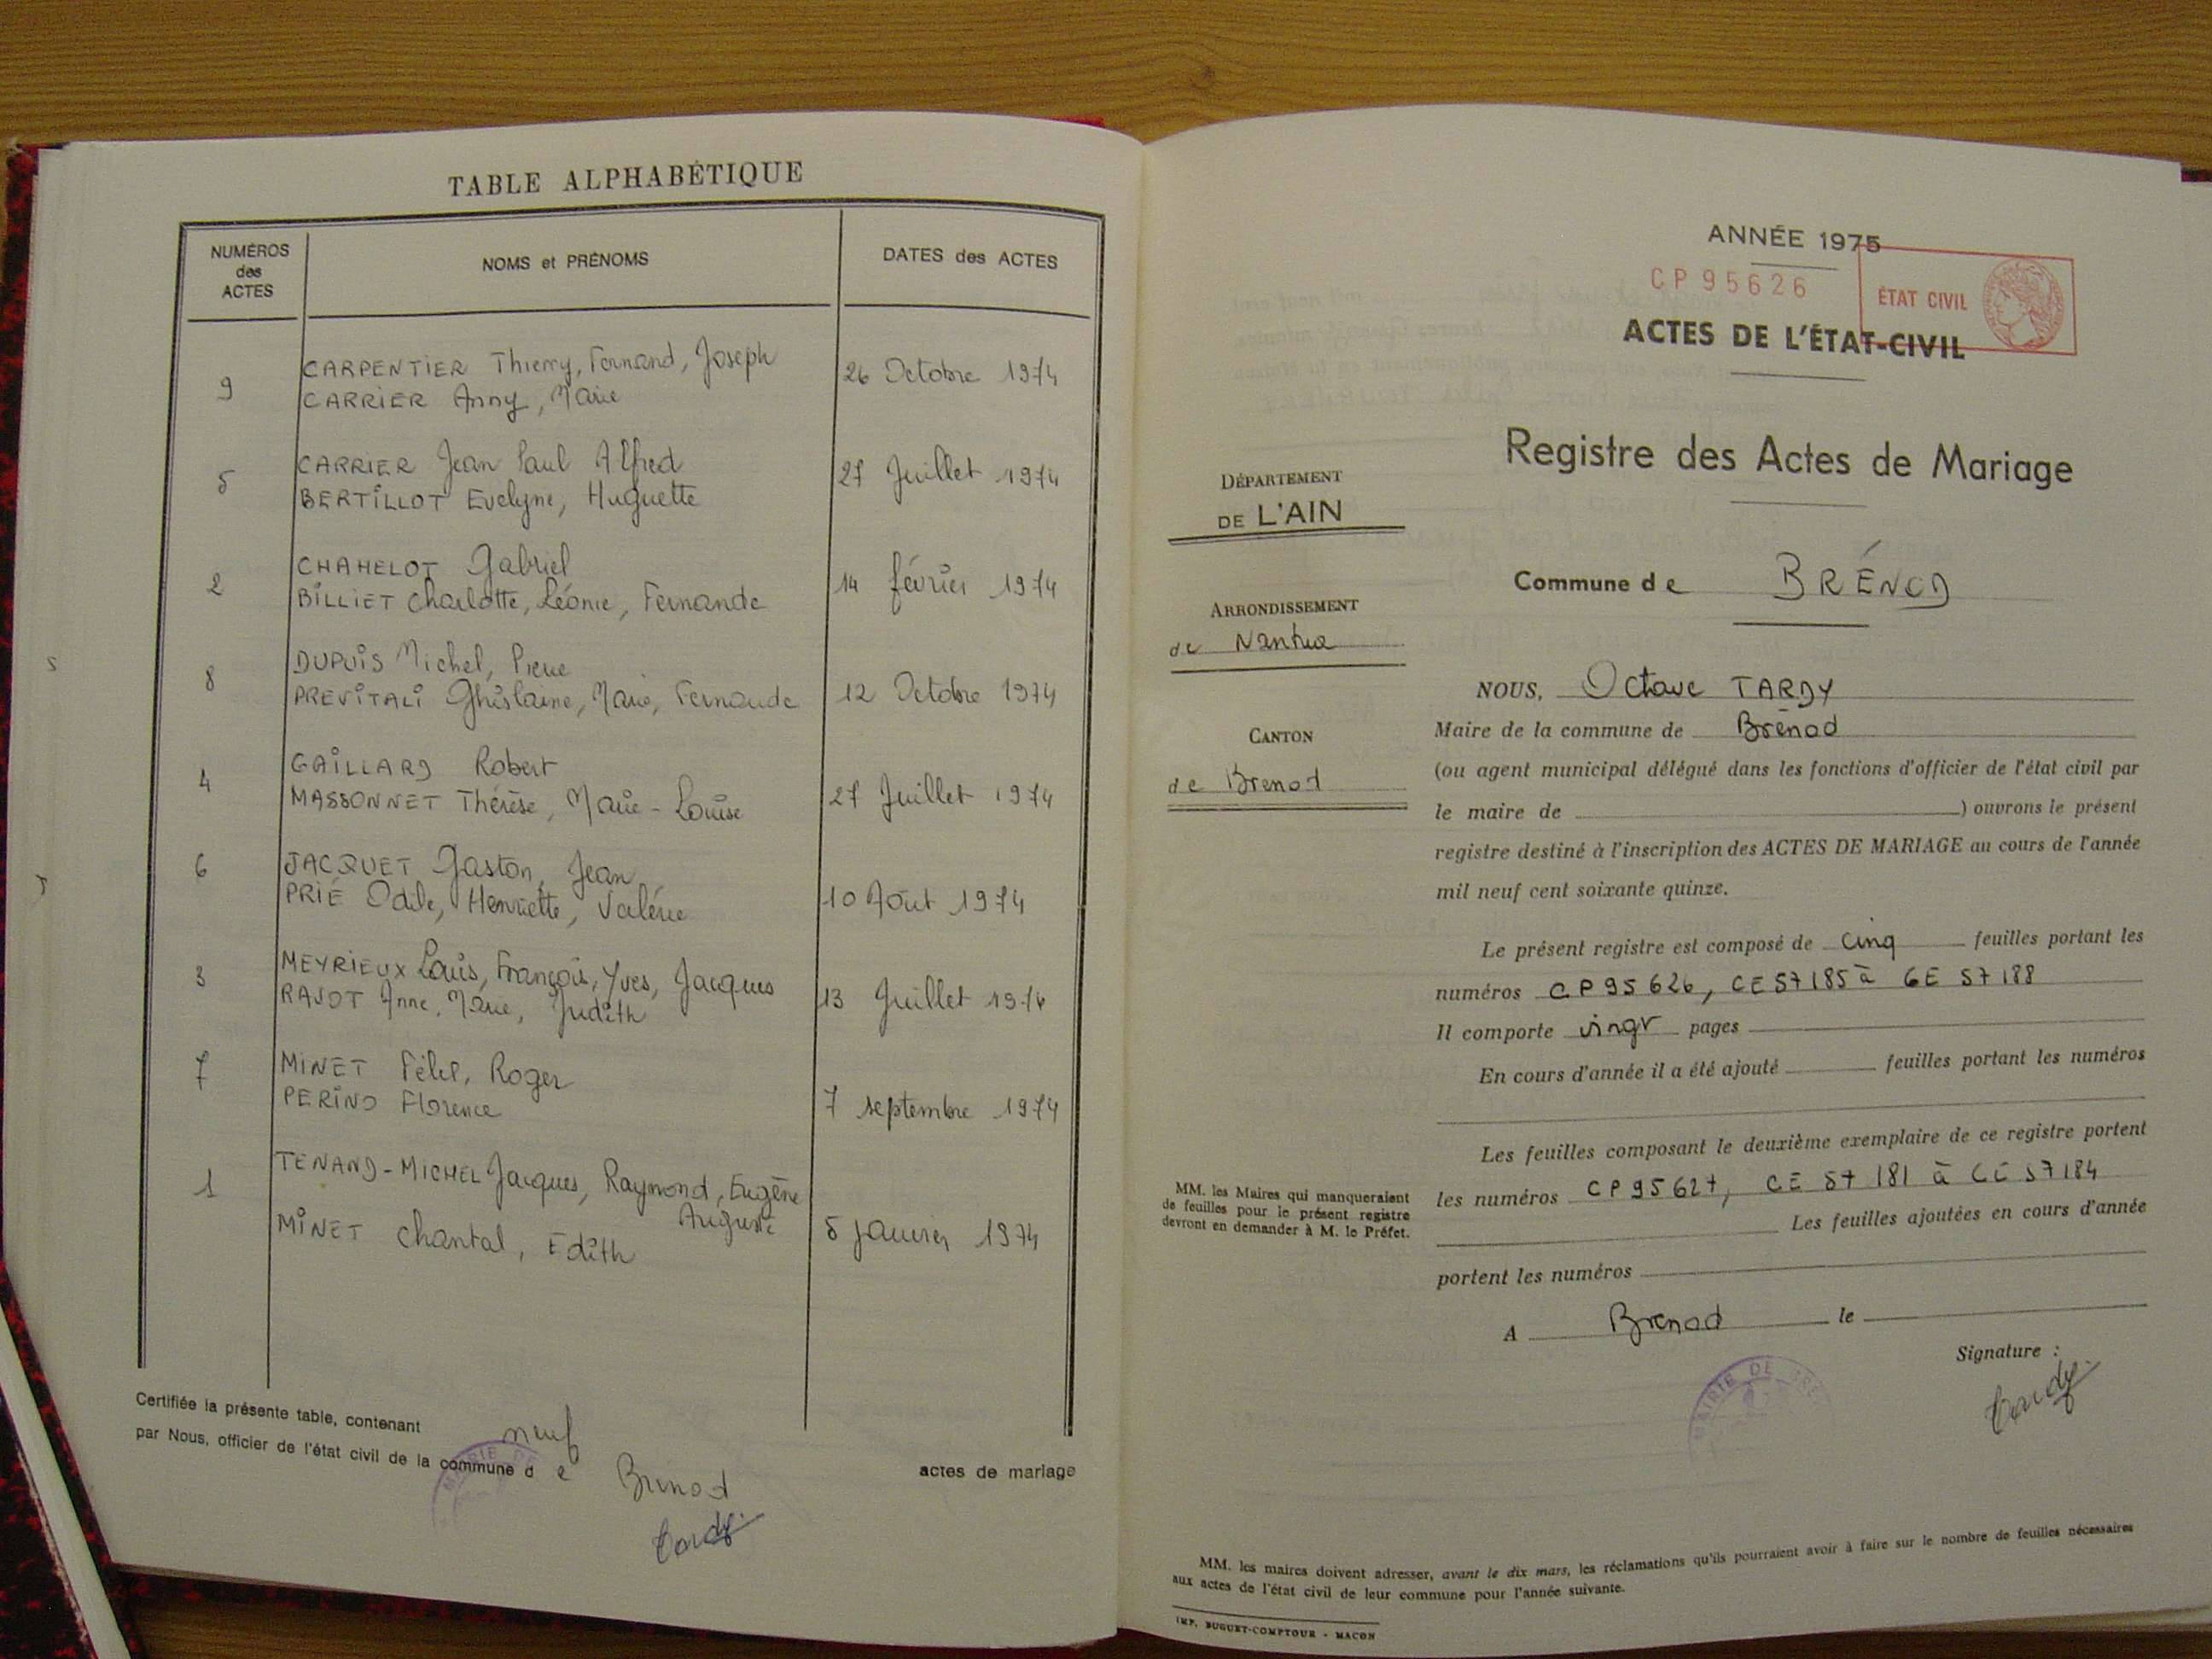 TABLE ALPHABÉTIQUE
NUMÉROS
des
ACTES
NOMS et PRÉNOMS
DATES des ACTES
9 CARPENTIER Thierry, Fernand, Joseph 26 Octobre 1974
CARRIER Anny, Marie
5 CARRIER Jean Paul Alfred 27 Juillet 1974
BERTILLOT Evelyne, Huguette
2 CHAMELOT Gabriel 14 février 1974
BILLIET Charlotte, Léonie, Fernande
8 DUPUIS Michel, Pierre 12 Octobre 1974
PREVITALI Ghislaine, Marie, Fernande
4 GAILLARD Robert 27 Juillet 1974
MASSONNET Thérèse, Marie-Louise
6 JACQUET Gaston, Jean
PRIÉ Odile, Henriette, Valérie 10 Août 1974
3 MEYRIEUX Louis, François, Yves, Jacques 13 Juillet 1974
RAJOT Anne, Marie, Judith
7 MINET Félix, Roger
PERINO Florence 7 septembre 1974
1 TENAND-MICHEL Jacques, Raymond, Eugène
Auguste
MINET Chantal, Edith 5 janvier 1974
Certifiée la présente table, contenant neuf actes de mariage
par Nous, officier de l'état civil de la commune de Brénod
MAIRIE DE
Tardy
ANNÉE 1975
CP95626
ÉTAT CIVIL
ACTES DE L'ÉTAT-CIVIL
Registre des Actes de Mariage
DÉPARTEMENT
DE L'AIN
Commune de BRÉNOD
ARRONDISSEMENT
de Nantua
CANTON
de Brenod
NOUS, Octave TARDY
Maire de la commune de Brénod
(ou agent municipal délégué dans les fonctions d'officier de l'état civil par
le maire de ) ouvrons le présent
registre destiné à l'inscription des ACTES DE MARIAGE au cours de l'année
mil neuf cent soixante quinze.
Le présent registre est composé de cinq feuilles portant les
numéros CP 95 626, CE 57 185 à CE 57 188
Il comporte vingt pages
En cours d'année il a été ajouté feuilles portant les numéros
Les feuilles composant le deuxième exemplaire de ce registre portent
les numéros CP 95 627, CE 57 181 à CE 57 184
Les feuilles ajoutées en cours d'année
portent les numéros
MM. les Maires qui manqueraient
de feuilles pour le présent registre
devront en demander à M. le Préfet.
A Brenod le
Signature :
MAIRIE DE BRE
Tardy
MM. les maires doivent adresser, avant le dix mars, les réclamations qu'ils pourraient avoir à faire sur le nombre de feuilles nécessaires
aux actes de l'état civil de leur commune pour l'année suivante.
IMP. BUGUET-COMPTOUR - MACON